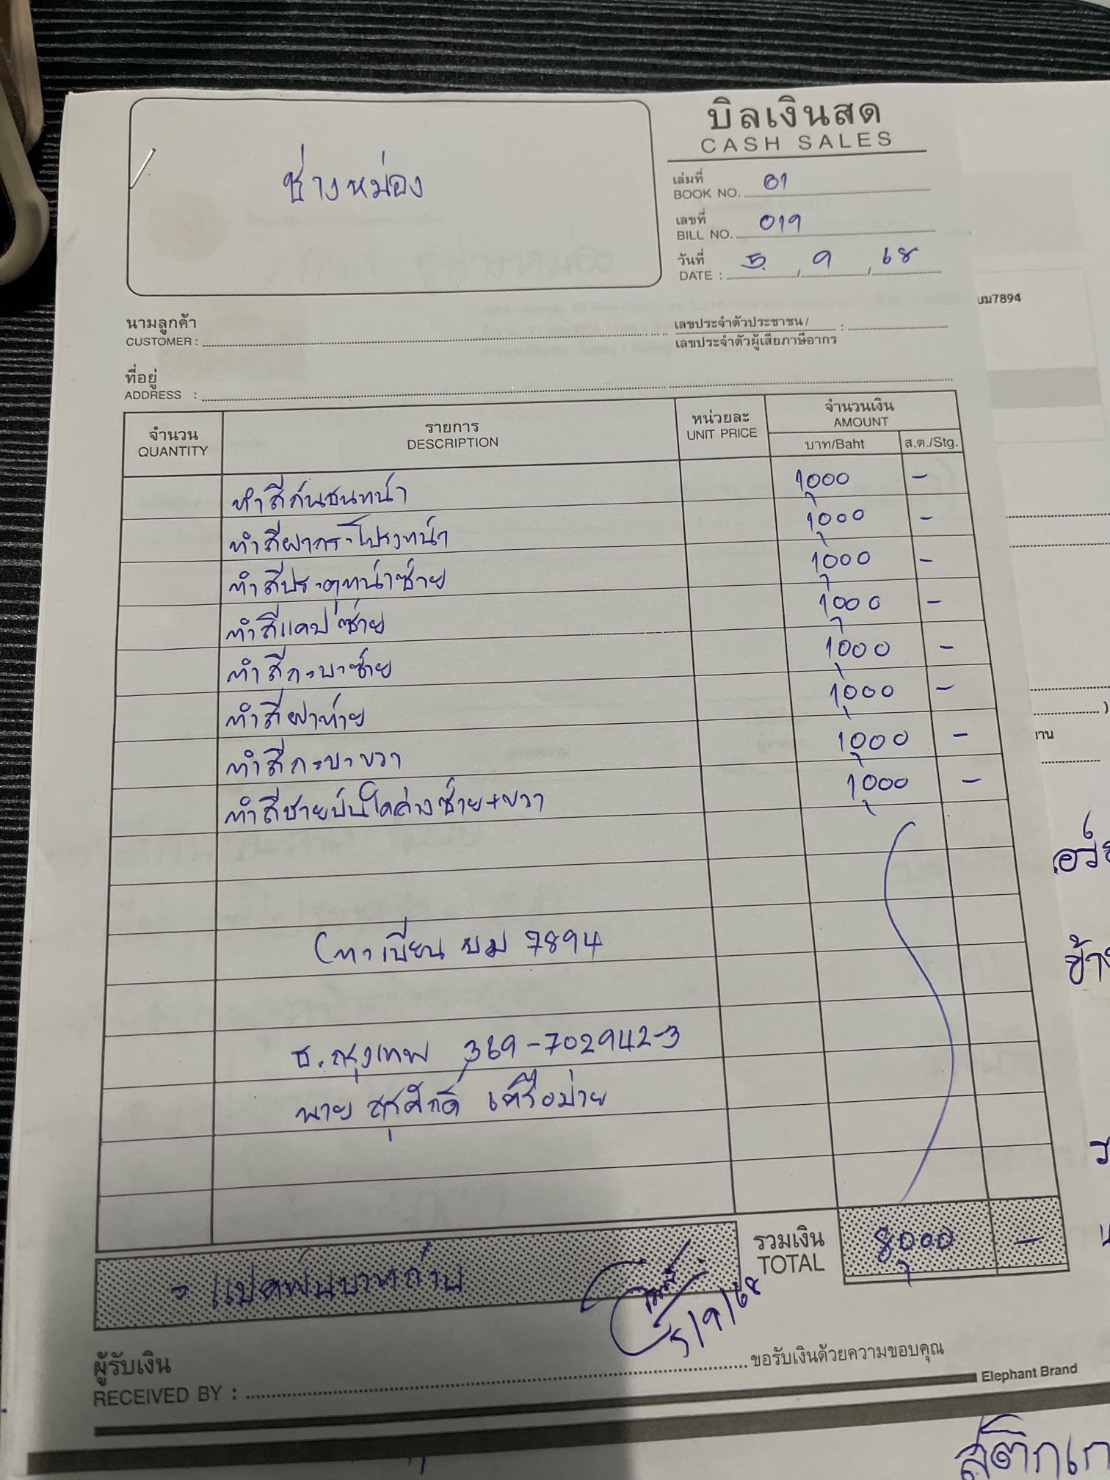 บิลเงินสด
CASH SALES
ช่างหม่อง
เล่มที่
BOOK NO. 01
เลขที่
BILL NO. 019
วันที่
DATE : 5 / 9 / 68
บม7894
นามลูกค้า
CUSTOMER :
เลขประจำตัวประชาชน /
เลขประจำตัวผู้เสียภาษีอากร :
ที่อยู่
ADDRESS :
จำนวน รายการ หน่วยละ จำนวนเงิน
QUANTITY DESCRIPTION UNIT PRICE AMOUNT
บาท/Baht ส.ต./Stg.
ทำสีกันชนหน้า 1,000 -
ทำสีฝากระโปรงหน้า 1,000 -
ทำสีประตูหน้าซ้าย 1,000 -
ทำสีแคปซ้าย 1,000 -
ทำสีกะบะซ้าย 1,000 -
ทำสีฝาท้าย 1,000 -
ทำสีกะบะขวา 1,000 -
ทำสีชายบันไดล่างซ้าย+ขวา 1,000 -
(ทะเบียน บม 7894
ธ.กรุงเทพ 369-702942-3
นาย สุรศักดิ์
รวมเงิน
TOTAL 8,000 -
= แปดพันบาทถ้วน
5/9/68
ผู้รับเงิน
RECEIVED BY : ขอรับเงินด้วยความขอบคุณ
Elephant Brand